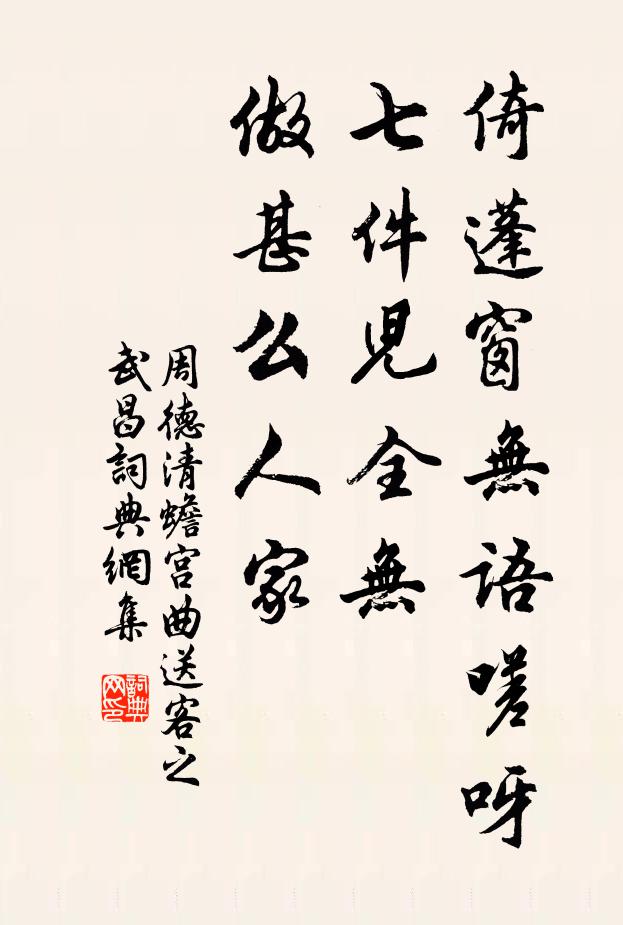 倚蓬窗無語嗟呀
七件兒全無
做甚么人家
周德清蟾宫曲送客之
武昌詞典網集
詞典网印